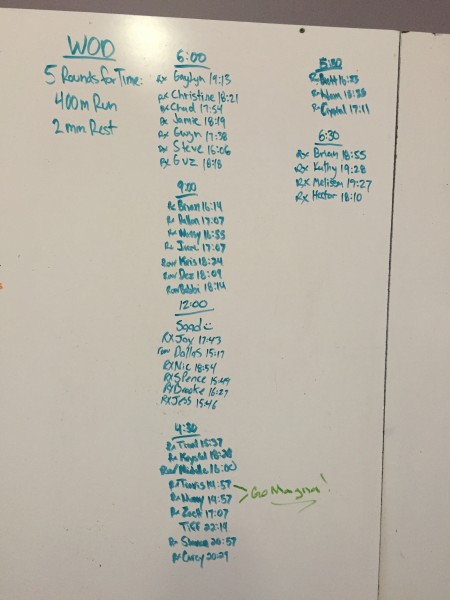 WOD
5 Rounds for Time:
400m Run
2 min Rest
6:00
Rx Gaylyn 19:13
Rx Christine 18:21
Rx Chad 17:54
Rx Jamie 18:19
Rx Gwyn 17:38
Rx Steve 16:06
Rx Guz 18:18
9:00
Rx Brian 16:14
Rx Dallon 17:07
Rx 16:55
Rx June 17:07
Row Kris 18:24
Row Dez 18:09
Row Bobbi 18:14
12:00
Saad
RX Joy 17:43
row Dallas 15:17
RX Nic 18:54
RX Spence 15:49
RX Brooke 16:27
RX Jess 15:46
4:30
Rx
Rx Krystal 18:28
Row 16:00
Rx Travis 19:57
Rx 19:57
Go Magna!
Rx Zach 17:07
Tiff 22:19
Rx 20:57
Rx Corey 20:29
5:30
Rx Brett
Rx Adam
Rx Crystal 17:11
6:30
Rx Brian 18:55
RX Kathy 19:28
RX Melissa 19:27
RX Hector 18:10